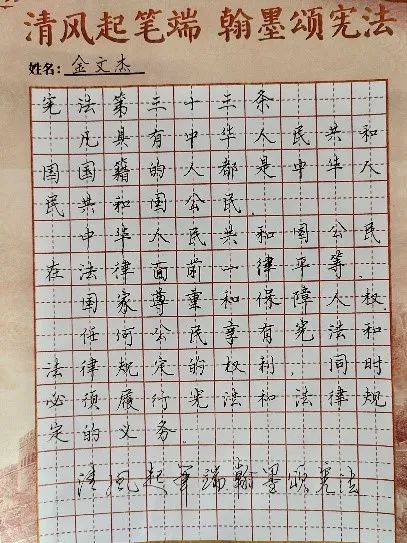 清风起笔端 翰墨颂宪法
姓名：金文杰
宪法第三十三条
凡具有中华人民共和
国国籍的人都是中华人
民共和国公民.
中华人民共和国公民
在法律面前一律平等.
国家尊重和保障人权.
任何公民享有宪法和
法律规定的权利，同时
必须履行宪法和法律规
定的义务.
清风起笔端翰墨颂宪法